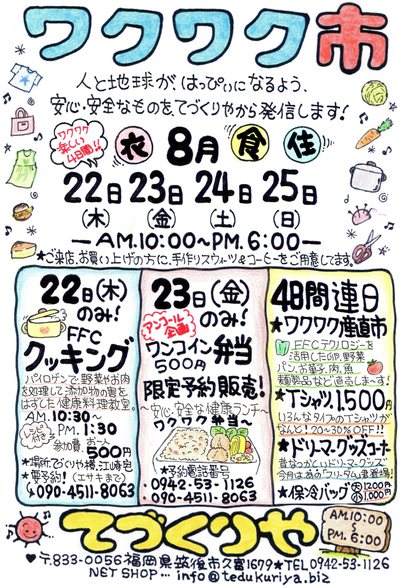 ワクワク市
人と地球が、はっぴぃになるよう、
安心・安全なものをてづくりやから発信します!
ワクワク
楽しい
4日間!!
衣 8月 食 住
22日 23日 24日 25日
(木) (金) (土) (日)
AM.10:00~PM.6:00
★ご来店、お買い上げの方に、手作りスウィーツ&コーヒーをご用意してます。
22日(木)
のみ!
FFC
クッキング
パイロゲンで、野菜やお肉
を処理して添加物の害を
はずした健康料理教室。
AM.10:30~
PM.1:30
レシピ付き
参加費 お一人
500円
★場所:てづくりや様、江崎宅
★要予約!(エサキまで)
090-4511-8063
23日(金)
のみ!
アンコール
企画
ワンコイン弁当
500円
限定予約販売!
~安心・安全な健康ランチ~
ワクワク弁当
★予約電話番号
0942-53-1126
090-4511-8063
4日間連日
★ワクワク産直市
FFCテクノロジーを
活用した卵、野菜
パン、お菓子、肉、魚
麺製品など直売しまーす!
★Tシャツ、1,500円
いろんなタイプのTシャツが
なんと!20~30%OFF!!
★ドリーマーグッズコーナー
昔なつかしいドリーマーグッズ
今月はあのワリータム還登場!
★保・冷バッグ 大 1,200円
小 1,000円
てづくりや
AM.10:00
~
PM.6:00
♥〒833-0056福岡県筑後市久富1679★TEL0942-53-1126
NET SHOP… info@tedukuriya.biz